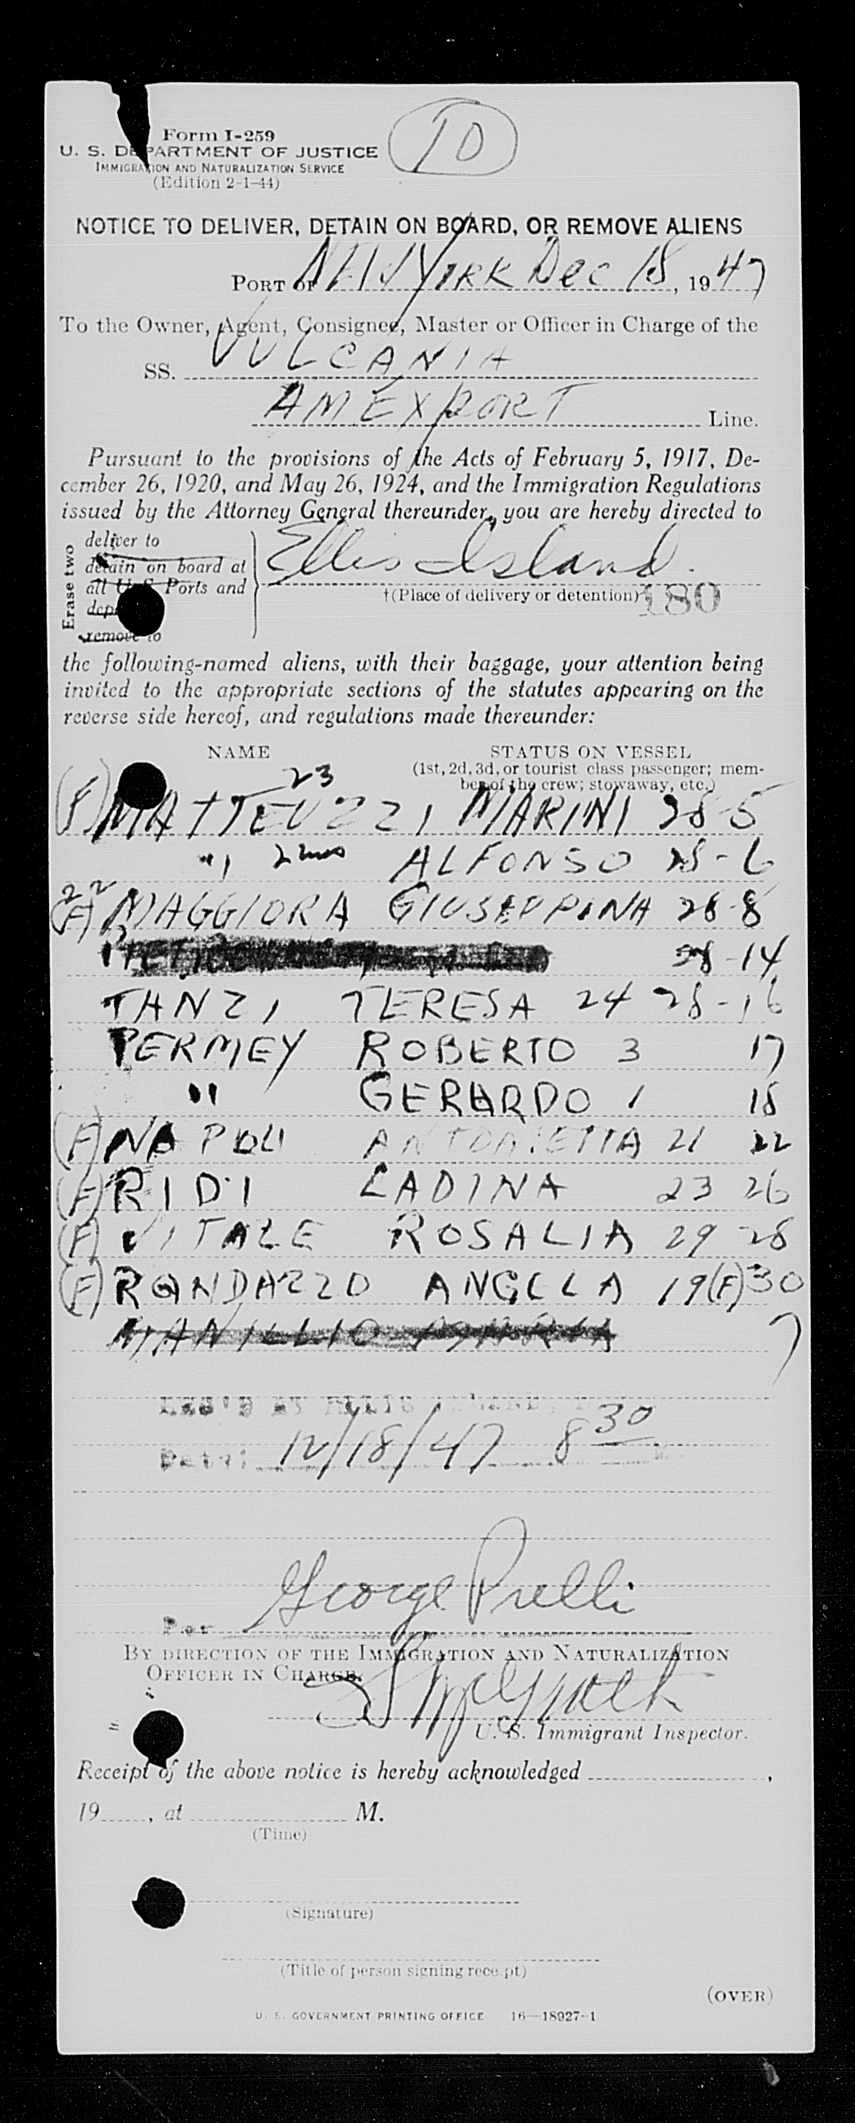 Form I-259
U. S. DEPARTMENT OF JUSTICE
IMMIGRATION AND NATURALIZATION SERVICE
(Edition 2-1-44)
NOTICE TO DELIVER, DETAIN ON BOARD, OR REMOVE ALIENS
PORT OF NEW YORK Dec 18, 1947
To the Owner, Agent, Consignee, Master or Officer in Charge of the
SS. VULCANIA
AM EXPORT Line.
Pursuant to the provisions of the Acts of February 5, 1917, De-
cember 26, 1920, and May 26, 1924, and the Immigration Regulations
issued by the Attorney General thereunder, you are hereby directed to
Erase two
deliver to
detain on board at
all U. S. Ports and
remove to
Ellis Island.
†(Place of delivery or detention) 180
the following-named aliens, with their baggage, your attention being
invited to the appropriate sections of the statutes appearing on the
reverse side hereof, and regulations made thereunder:
NAME STATUS ON VESSEL
(1st, 2d, 3d, or tourist class passenger; mem-
ber of the crew; stowaway, etc.)
23
(F) MATTEUZZI MARINI 28-5
" 2 mos ALFONSO 28-6
22
(F) MAGGIORA GIUSEPPINA 28-8
28-14
TANZI TERESA 24 28-16
PERMEY ROBERTO 3 17
" GERARDO 1 18
(F) NAPOLI ANTONIETTA 21 22
(F) RIDI LADINA 23 26
(F) VITALE ROSALIA 29 28
(F) RANDAZZO ANGELA 19 (F) 30
MANILLIO MARIA 7
REC'D AT ELLIS ISLAND,
Date: 12/18/47 8 30
Per George Prelli
BY DIRECTION OF THE IMMIGRATION AND NATURALIZATION
OFFICER IN CHARGE.
U. S. Immigrant Inspector.
Receipt of the above notice is hereby acknowledged ,
19 , at M.
(Time)
(Signature)
(Title of person signing receipt)
(OVER)
U. S. GOVERNMENT PRINTING OFFICE 16—18927-1